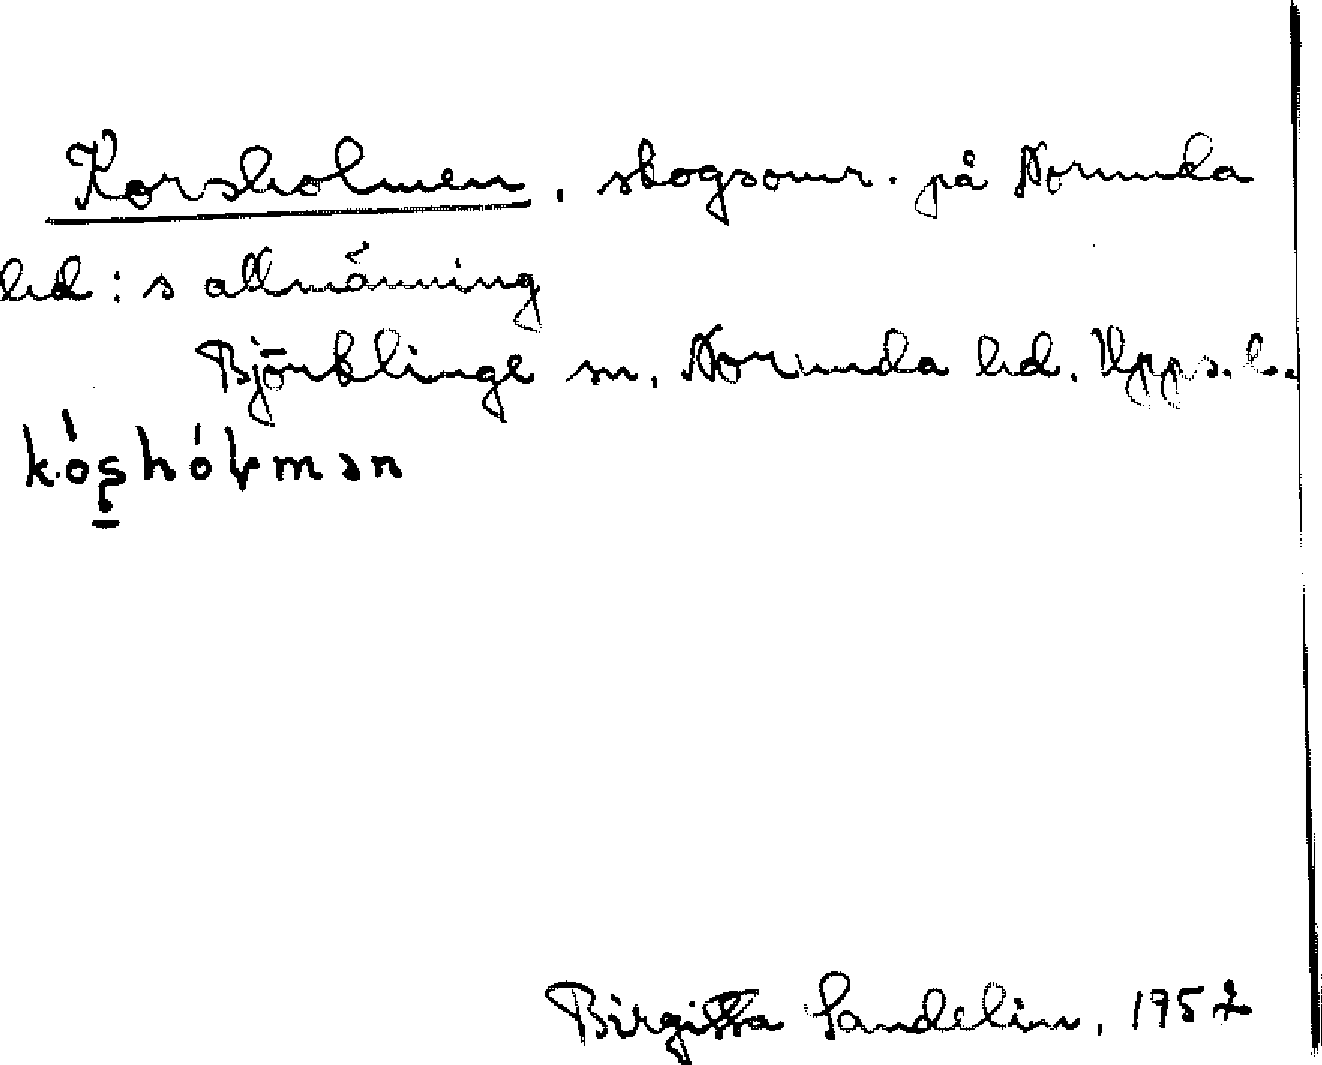 Korsholmen, skogsomr. på Norunda
hd:s allmänning
Björklinge sn, Norunda hd. Upps. l.
kóṣhóɫmən
Birgitta Sandelin, 1952